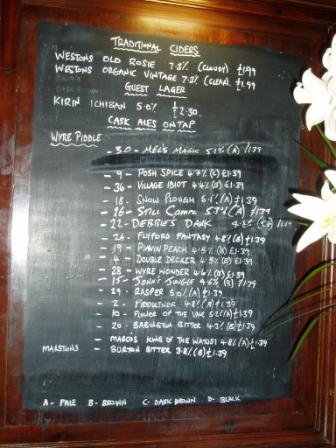 TRADITIONAL CIDERS
WESTONS OLD ROSIE 7.3% (CLOUDY) £1.99
WESTONS ORGANIC VINTAGE 7.3% (CLEAR. £1.99
GUEST LAGER
KIRIN ICHIBAN 5.0% £2.30.
CASK ALES ON TAP
WYRE PIDDLE
- 30 - MEL'S MAGIC 5.1% (A) 1.39
- 9 - POSH SPICE 4.7% (C) £1.39
- 36 - VILLAGE IDIOT 4.4% (B) £1.39
- 18 - SNOW PLOUGH 5.1% (A) £1.39
- 16 - STILL 5.7% (A) £1.39
- 22 - DEBBIE'S DARK
- FLYFORD FANTASY 4.8% (B) £1.39
- 19 - PEACH 4.5% (A) £1.39
- 4 - DOUBLE DECKER 4.5% (B) £1.39
- 28 - WYRE WONDER 4.6% (B) £1.39
- 15 - JUNGLE 4.6% (B) £1.39
- 29 - RASPER 5.0% (A) £1.39
- 2 - PIDDLETHER 4.8% (A) £1.39
- 10 - OF THE 5.2% (A) £1.39
- 20 - BABINGTON BITTER 4.3% (B) £1.39
- MARCOS KING OF THE WATUSI 4.8% (A) £1.39
MARSTONS - BURTON BITTER 3.8% (B) £1.39
A - PALE B - BROWN C - DARK BROWN D - BLACK